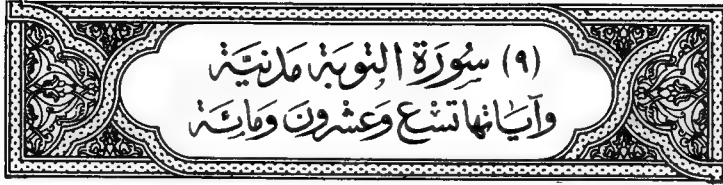 (٩) سُورَة التوبَة مَدَنيَّة
وَآيَاتهَا تسْع وَعشرُونَ وَمائة